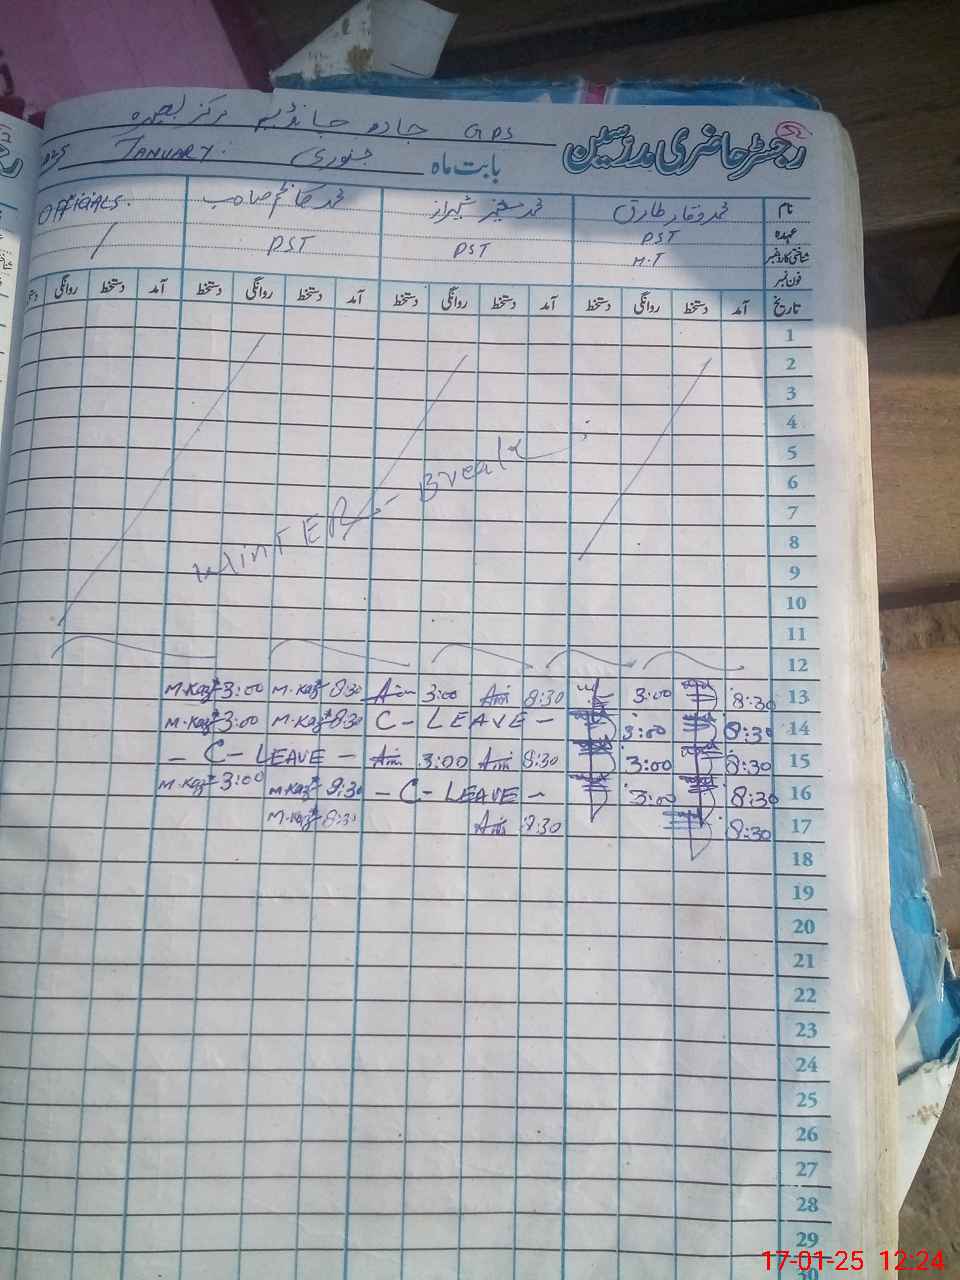 رجسٹر حاضری مدرسین
GPS جادہ جانڈیہ مرکز بصیرہ
بابت ماہ جنوری JANUARY.
نام محمد وقار طارق محمد صاحب OFFICIALS.
عہدہ PST PST PST /
شناختی کارڈ نمبر M.T
فون نمبر
تاریخ آمد دستخط روانگی دستخط آمد دستخط روانگی دستخط آمد دستخط روانگی دستخط آمد دستخط روانگی
1
2
3
4
5
6
7
8
WinTER - Break
9
10
11
12
13 8:30 3:00 8:30 3:00 8:30 M.Kaz 3:00 M.Kaz
14 8:30 3:00 C - LEAVE - 8:30 M.Kaz 3:00 M.Kaz
15 8:30 3:00 8:30 3:00 - C - LEAVE -
16 8:30 3:00 - C - LEAVE - 8:30 M.Kaz 3:00 M.Kaz
17 8:30 8:30 8:30 M.Kaz
18
19
20
21
22
23
24
25
26
27
28
29
30
17-01-25 12:24